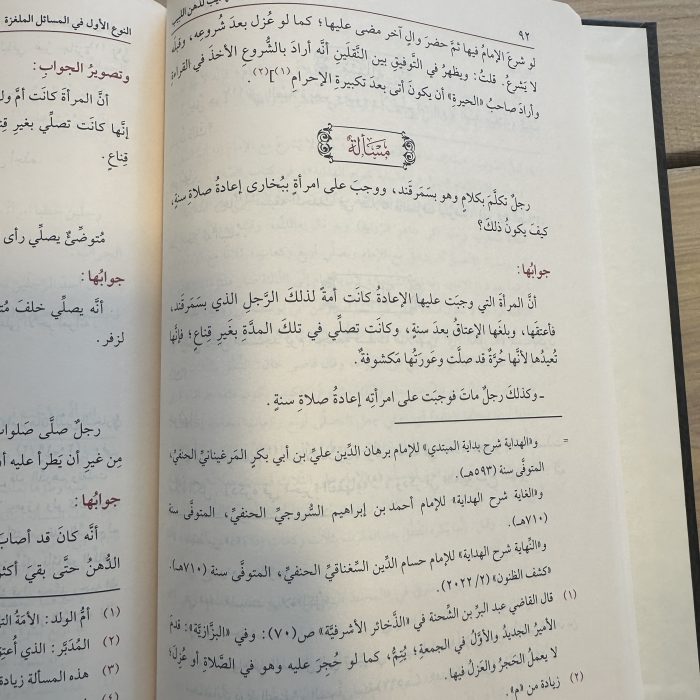 ٩٢
لو شرعَ الإمامُ فيها ثمَّ حضرَ والٍ آخر مضى عليها؛ كما لو عُزل بعدَ شُروعِه، وقبلَه
لا يَشرعُ. قلتُ: ويظهرُ في التَّوفيقِ بين النَّقلَينِ أنَّه أرادَ بالشُّروعِ الأخذَ في القراءةِ
وأرادَ صاحبُ «الحيرةِ» أن يكونَ أتى بعدَ تكبيرةِ الإحرامِ(١)](٢)
مَسْأَلَةٌ
رجلٌ تكلَّمَ بكلامٍ وهو بسَمَرقَند، ووجبَ على امرأةٍ ببُخارى إعادةُ صلاةِ سنةٍ،
كيفَ يكونُ ذلكَ؟
جوابُها:
أنَّ المرأةَ التي وجبَت عليها الإعادةُ كانَت أمةً لذلكَ الرَّجلِ الذي بسَمَرقَند،
فأعتقَها، وبلغَها الإعتاقُ بعدَ سنةٍ، وكانَت تصلِّي في تلكَ المدَّةِ بغَيرِ قِناعٍ؛ فإنَّها
تُعيدُها لأنَّها حُرَّةٌ قد صلَّت وعَورَتُها مَكشوفةٌ.
ـ وكذلكَ رجلٌ ماتَ فوجبَت على امرأتِه إعادةُ صلاةِ سنةٍ.
= و«الهداية شرح بداية المبتدي» للإمام برهان الدِّين عليِّ بن أبي بكرٍ المَرغينانيِّ الحنفيِّ،
المتوفَّى سنة (٥٩٣هـ).
و«الغاية شرح الهداية» للإمام أحمد بن إبراهيم السُّروجيِّ الحنفيِّ، المتوفَّى سنة
(٧١٠هـ).
و«النِّهاية شرح الهداية» للإمام حسام الدِّين السِّغناقيِّ الحنفيِّ، المتوفَّى سنة (٧١٠هـ).
«كشف الظنون» (٢/ ٢٠٢٢).
(١) قال القاضي عبد البرِّ بن الشِّحنة في «الذَّخائر الأشرفيَّة» ص(٧٠): وفي «البزَّازية»: قدمَ
الأميرُ الجديدُ والأوَّلُ في الجمعةِ؛ يُتِمُّ، كما لو حُجِرَ عليه وهو في الصَّلاةِ أو عُزِلَ؛
لا يعملُ الحَجرُ والعَزلُ فيها.
(٢) زيادة من «م».
النوع الأول في المسائل الملغزة
وتصويرُ الجوابِ:
أنَّ المرأةَ كانَت أمَّ
إنَّها كانَت تصلِّي بغيرِ
قِناعٍ.
مُتوضِّئٌ يصلِّي رأى
جوابُها:
أنَّه يصلِّي خلفَ
لزفر.
رجلٌ صلَّى صَلوات
مِن غيرِ أن يَطرأَ عليه
جوابُها:
أنَّه كانَ قد أصابَ
الدُّهنُ حتَّى بقيَ أكثرَ
(١) أمُّ الولد: الأمَةُ
(٢) المُدَبَّر: الذي
(٣) هذه المسألة زيادة